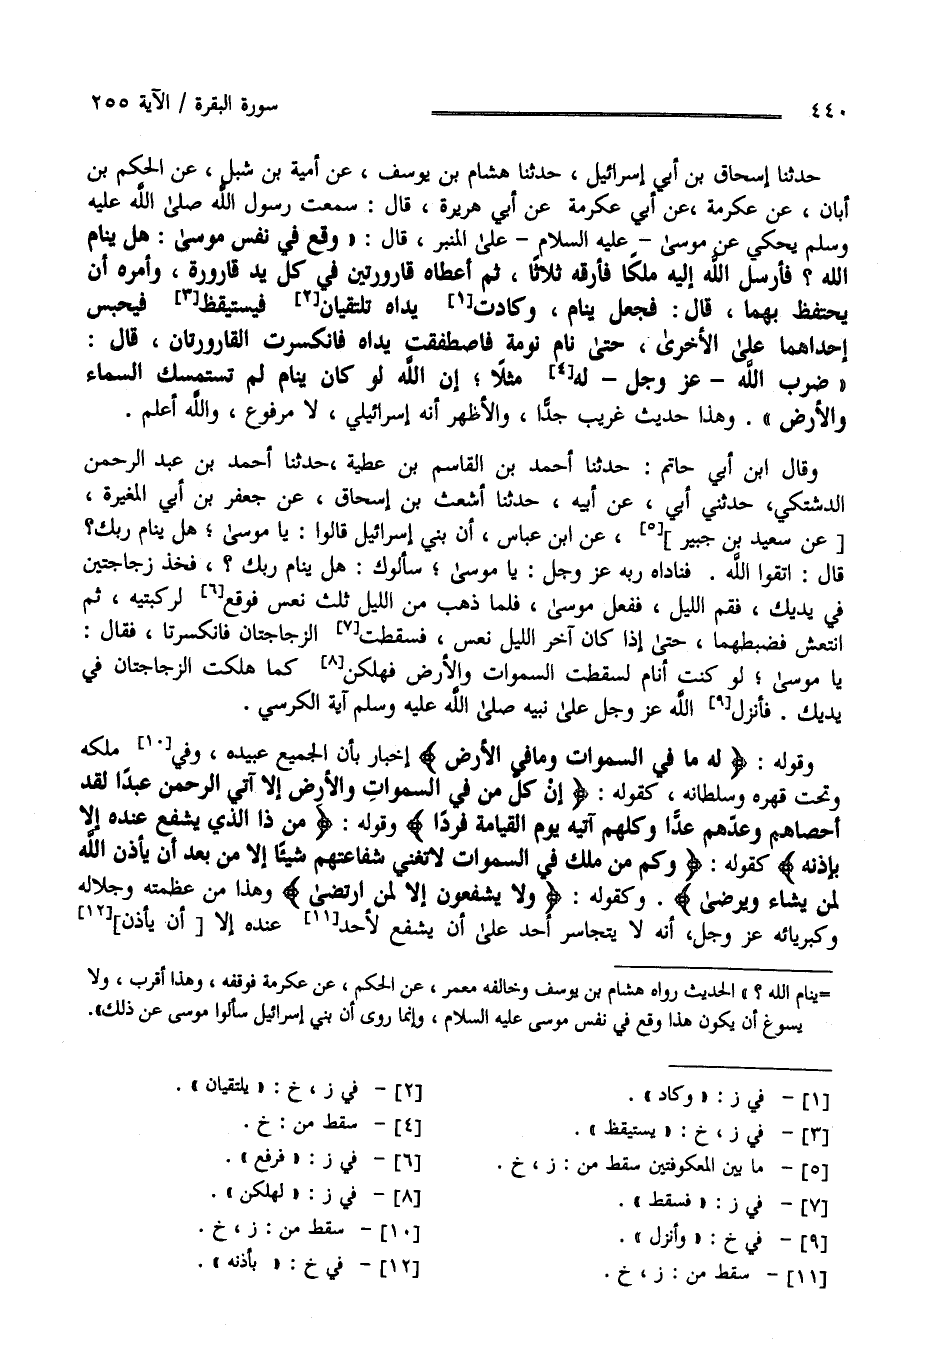 ٤٤٠ سورة البقرة / الآية ٢٥٥
حدثنا إسحاق بن أبي إسرائيل ، حدثنا هشام بن يوسف ، عن أمية بن شبل ، عن الحكم بن
أبان ، عن عكرمة ،عن أبي عكرمة عن أبي هريرة ، قال : سمعت رسول اللَّه صلىٰ اللَّه عليه
وسلم يحكي عن موسىٰ – عليه السلام – علىٰ المنبر ، قال : « وقع في نفس موسىٰ : هل ينام
الله ؟ فأرسل اللَّه إليه ملكًا فأرقه ثلاثًا ، ثم أعطاه قارورتين في كل يد قارورة ، وأمره أن
يحتفظ بهما ، قال : فجعل ينام ، وكادت[١] يداه تلتقيان[٢] فيستيقظ[٣] فيحبس
إحداهما علىٰ الأخرىٰ ، حتىٰ نام نومة فاصطفقت يداه فانكسرت القارورتان ، قال :
« ضرب اللَّه – عز وجل – له[٤] مثلًا ؛ إن اللَّه لو كان ينام لم تستمسك السماء
والأرض » . وهذا حديث غريب جدًّا ، والأظهر أنه إسرائيلي ، لا مرفوع ، واللَّه أعلم .
وقال ابن أبي حاتم : حدثنا أحمد بن القاسم بن عطية ،حدثنا أحمد بن عبد الرحمن
الدشتكي، حدثني أبي ، عن أبيه ، حدثنا أشعث بن إسحاق ، عن جعفر بن أبي المغيرة ،
[ عن سعيد بن جبير ][٥] ، عن ابن عباس ، أن بني إسرائيل قالوا : يا موسىٰ ؛ هل ينام ربك؟
قال : اتقوا اللَّه . فناداه ربه عز وجل : يا موسىٰ ؛ سألوك : هل ينام ربك ؟ ، فخذ زجاجتين
في يديك ، فقم الليل ، ففعل موسىٰ ، فلما ذهب من الليل ثلث نعس فوقع[٦] لركبتيه ، ثم
انتعش فضبطهما ، حتىٰ إذا كان آخر الليل نعس ، فسقطت[٧] الزجاجتان فانكسرتا ، فقال :
يا موسىٰ ؛ لو كنت أنام لسقطت السموات والأرض فهلكن[٨] كما هلكت الزجاجتان في
يديك . فأنزل[٩] اللَّه عز وجل علىٰ نبيه صلىٰ اللَّه عليه وسلم آية الكرسي .
وقوله : ﴿ له ما في السموات ومافي الأرض ﴾ إخبار بأن الجميع عبيده ، وفي[١٠] ملكه
وتحت قهره وسلطانه ، كقوله : ﴿ إنْ كلُّ من في السمواتِ والأرض إلا آتي الرحمن عبدًا لقد
أحصاهم وعدّهم عدًّا وكلهم آتيه يوم القيامة فردًا ﴾ وقوله : ﴿ من ذا الذي يشفع عنده إلا
بإذنه ﴾ كقوله : ﴿ وكم من ملك في السموات لاتغني شفاعتهم شيئًا إلا من بعد أن يأذن اللَّه
لمن يشاء ويرضىٰ ﴾ . وكقوله : ﴿ ولا يشفعون إلا لمن ارتضىٰ ﴾ وهذا من عظمته وجلاله
وكبريائه عز وجل، أنه لا يتجاسر أحد علىٰ أن يشفع لأحد[١١] عنده إلا [ أن يأذن][١٢]
=ينام الله ؟ » الحديث رواه هشام بن يوسف وخالفه معمر ، عن الحكم ، عن عكرمة فوقفه ، وهذا أقرب ، ولا
يسوغ أن يكون هذا وقع في نفس موسى عليه السلام ، وإنما روى أن بني إسرائيل سألوا موسى عن ذلك».
[١] – في ز : « وكاد » . [٢] – في ز ، خ : « يلتقيان » .
[٣] – في ز ، خ : « يستيقظ » . [٤] – سقط من : خ .
[٥] – ما بين المعكوفتين سقط من : ز ، خ . [٦] – في ز : « فرفع » .
[٧] – في ز : « فسقط » . [٨] – في ز : « لهلكن » .
[٩] – في خ : « وأنزل » . [١٠] – سقط من : ز ، خ .
[١١] – سقط من : ز ، خ . [١٢] – في خ : « بأذنه » .